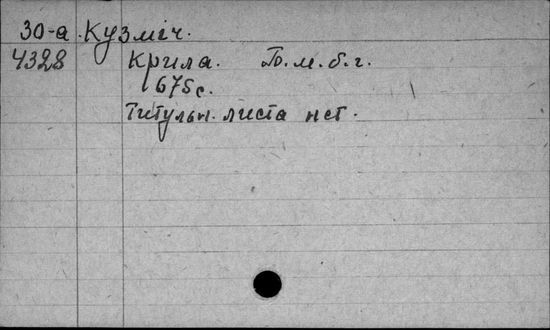 30-а Кузміч.
4328 Крила. Б.м.б.г.
675с.
Титульн. листа нет.